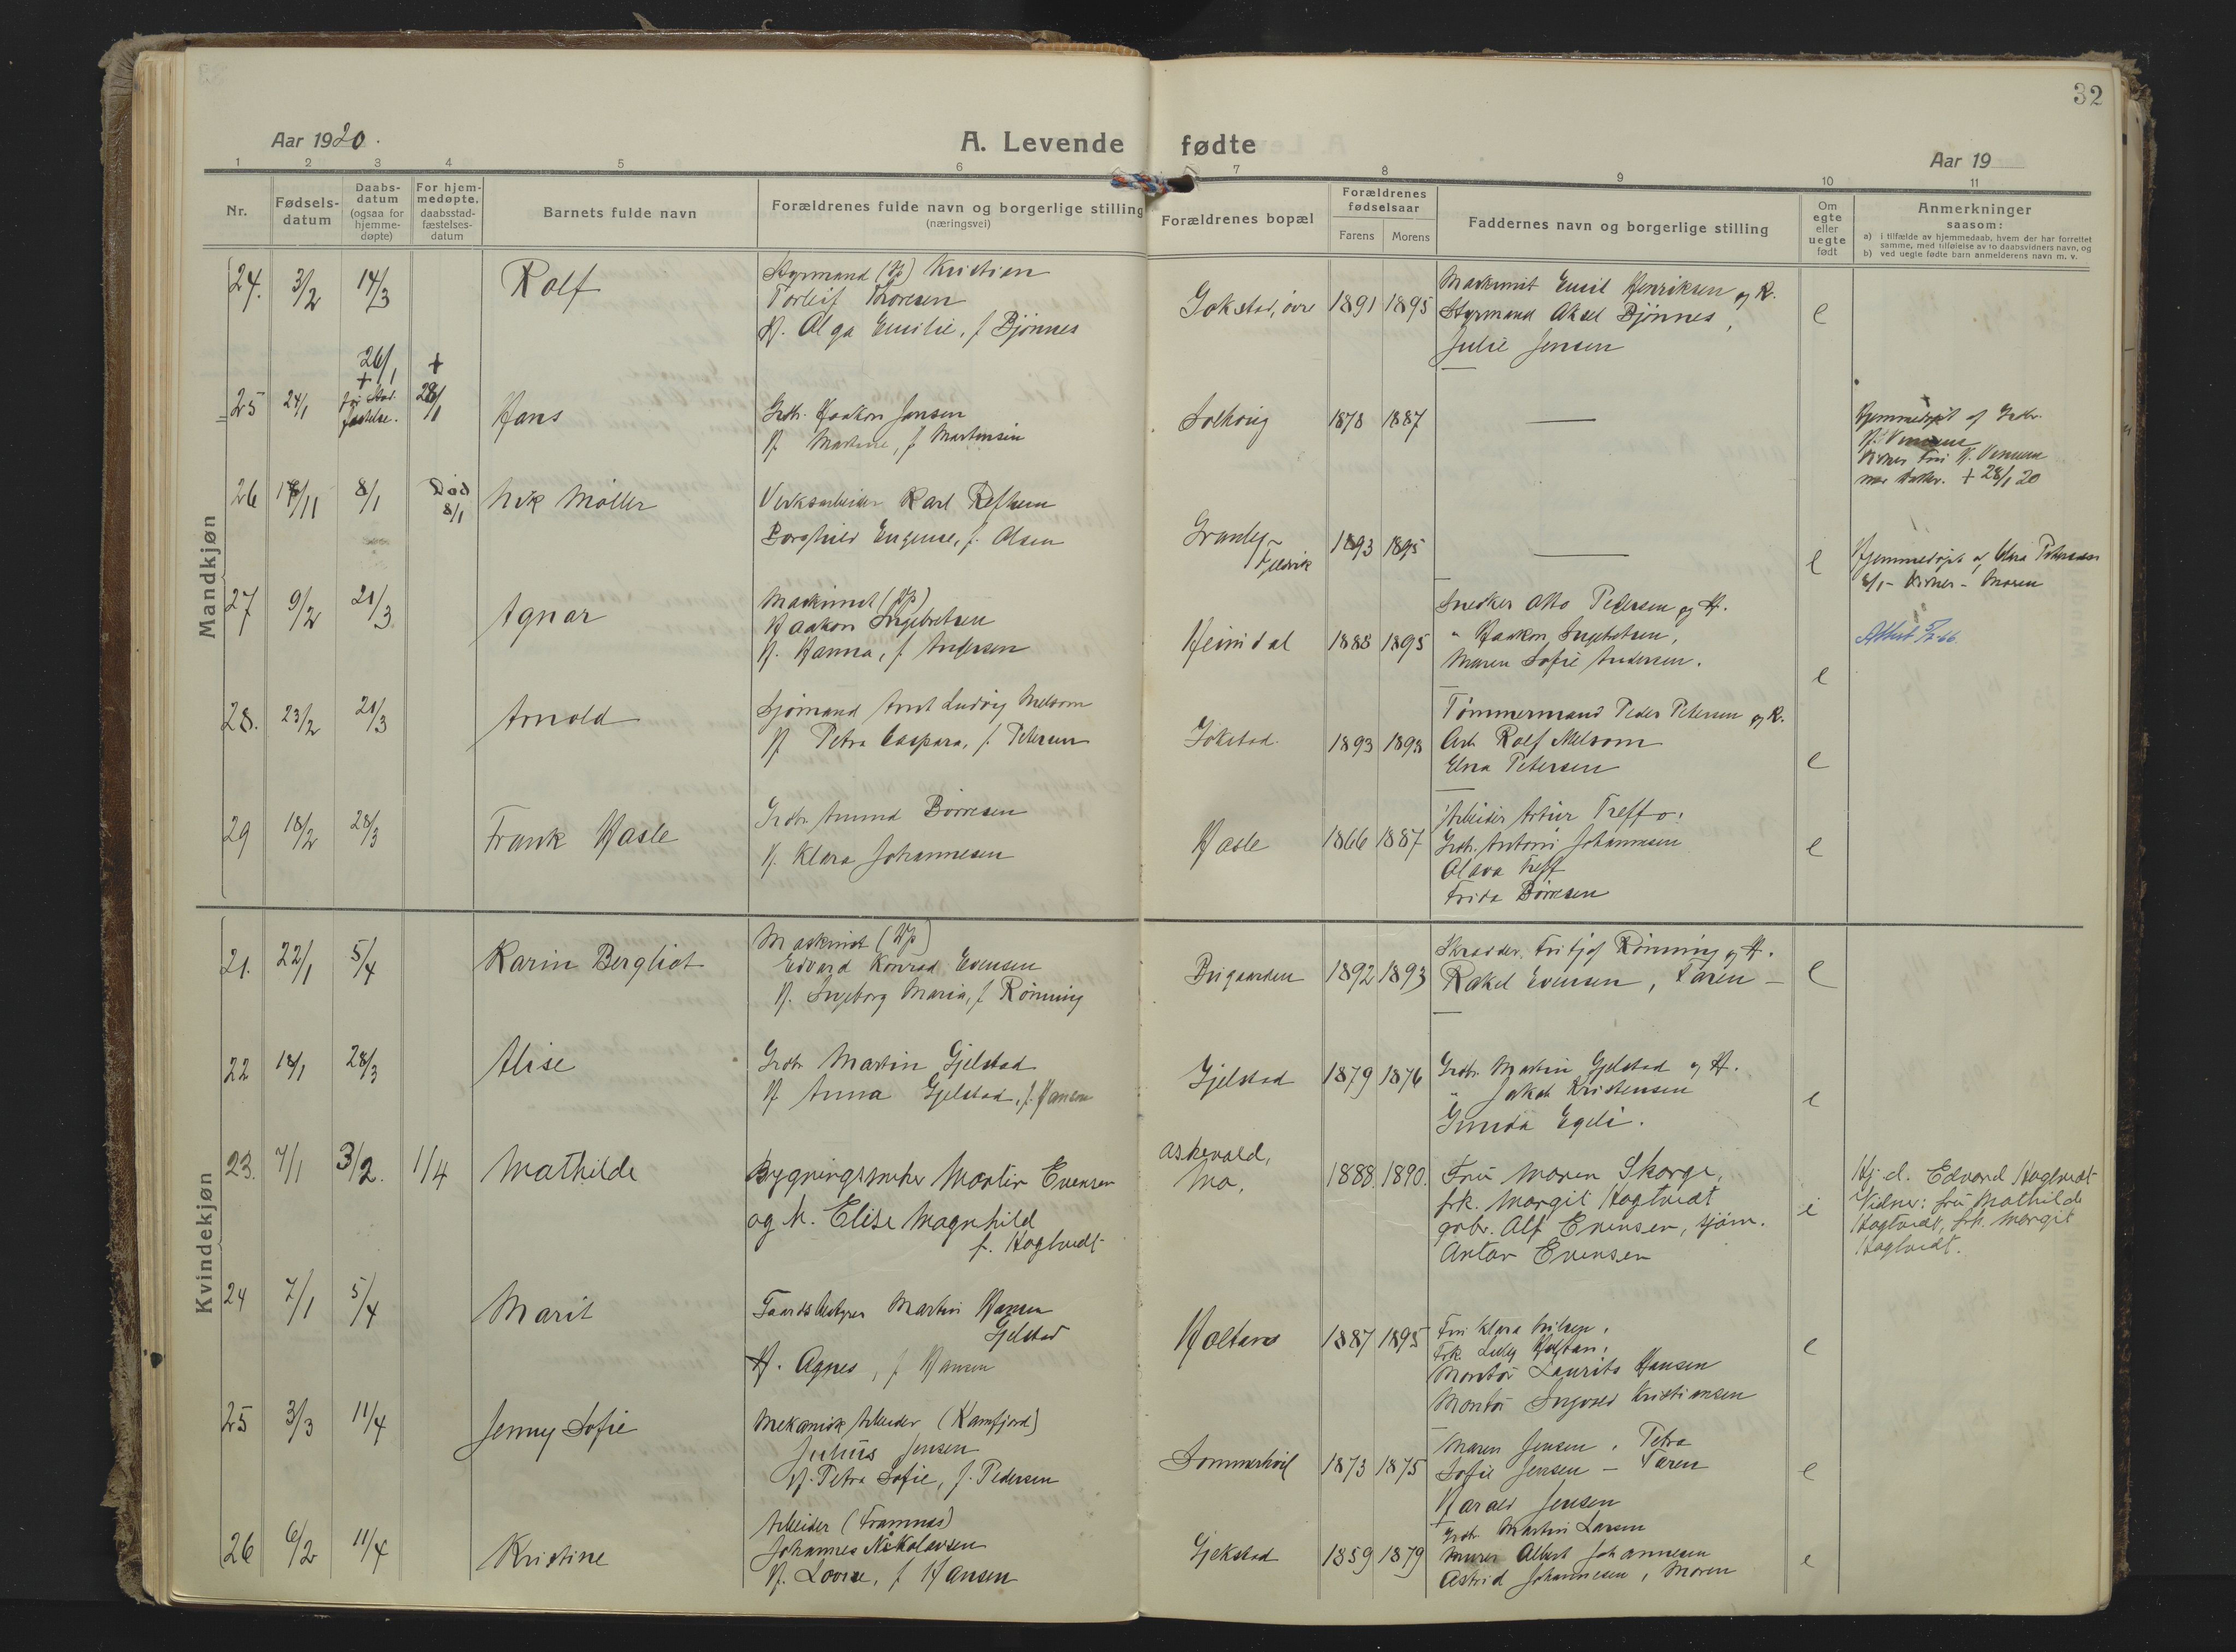 32
Aar 1920.
A. Levende fødte
Aar 19
1 2 3 4 5 6 7 8 9 10 11
Nr.
Fødsels-
datum
Daabs-
datum
(ogsaa for
hjemme-
døpte)
For hjem-
medøpte.
daabsstad-
fæstelses-
datum
Barnets fulde navn
Forældrenes fulde navn og borgerlige stilling
(næringsvei)
Forældrenes bopæl
Forældrenes
fødselsaar
Farens Morens
Faddernes navn og borgerlige stilling
Om
egte
eller
uegte
født
Anmerkninger
saasom:
a) i tilfælde av hjemmedaab, hvem der har forrettet
samme, med tilføielse av to daabsvidners navn, og
b) ved uegte fødte barn anmelderens navn m. v.
Mandkjøn
24. 3/2 14/3
Rolf
Styrmand Kristian
Torleif Thoresen
H. Olga Emilie, f Bjönnes
Gokstad, övre 1891 1895
Maskinist Emil Henriksen og K.
Styrmand Aksel Bjönnes,
Julie Jensen
e
25 24/1 26/1 + 28/1
Hans
Grdbr. Haakon Jensen
H. Martine, f. Martinsen
Solhöug 1878 1887
Hjemmedöpt af
+ 28/1 20
26 /11 8/1 Död 8/1
Nik Möller
Verksarbeider Karl Refhem
Borghild Eugenie, f. Olsen
Granly
1893 1895
e
Hjemmedöpt af Elna Petersen
8/1 - Vidner - Moren
27 9/2 21/3
Agnar
Maskinist
Haakon Ingebretsen
H. Hanna, f Andersen
Heimdal 1888 1895
Snedker Otto Pedersen og H.
" Haakon Ingebretsen,
Maren Sofie Andersen.
e
28. 23/2 21/3
Arnold
Sjömand Arnt Ludvig Melsom
H. Petra Caspara, f. Petersen
Gokstad 1893 1898
Tömmermand Peder Petersen og K.
Arb Rolf Melsom
Elna Petersen
e
29 18/2 28/3
Frank Hasle
Grdbr. Amund Börresen
H. Klara Johannesen
Hasle 1866 1887
Arbeider Artur Treff o.
Grdbr. Antoni Johannesen
Olava Treff
Frida Börresen
e
Kvindekjøn
21. 22/1 5/4
Karin Bergliot
Maskinist
Edvard Konrad Evensen
H. Ingeborg Maria, f Rönning
1892 1893
Skrædder. Fritjof Rönning og H.
Rakel Evensen, Faren -
e
22 18/1 28/3
Alise
Grdbr Martin Gjelstad
H Anna Gjelstad, f. Hansen
Gjelstad 1879 1876
Grdbr. Martin Gjelstad og H.
" Jakob Kristensen
Gunda Egeli.
e
23. 7/1 3/2. 1/4
Mathilde
Bygningssneker Martin Evensen
og h. Elise Magnhild
f. Hagtvedt
Askevold,
Mo, 1888. 1890.
Fru Maren Skorge,
frk. Margit Hagtvedt
grbr. Alf Evensen, sjöm.
Anton Evensen
Hj. d. Edvard Hagtvedt
Vidner: fru Mathilde
Hagtvedt, frk. Margit
Hagtvedt.
24 7/1 5/4
Marit
Gaardsbestyrer Martin Hansen
Gjelstad
H. Agnes, f Hansen
Holtan 1887 1895
Fru Klara Nilsen,
Frk. Lilly Holtan,
Montör Laurits Hansen
Montör Ingvald Kristiansen
e
25 3/3 11/4
Jenny Sofie
Mekanisk Arbeider (Kamfjord)
Julius Jensen
H. Petra Sofie, f. Pedersen
Sommerhvil 1873 1875
Maren Jensen, Petra
Sofie Jensen - Faren
Harald Jensen
e
26 6/2 11/4
Kristine
Arbeider (Framnæs)
Johannes Nikolaisen
H. Lovise, f Hansen
Gjekstad 1859 1879
Grdbr Martin Larsen
Murer Albert Johannesen
Astrid Johannesen, Moren
e